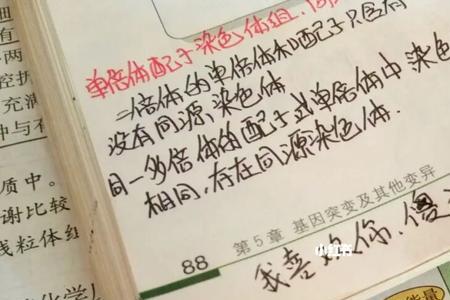 单倍体配子染色体组.
二倍体的单倍体和配子只含有
没有同源染色体
同一多倍体的配子或单倍体中染色
相同,存在同源染色体.
88
第5章 基因突变及其他变异
我喜欢你,傻
小红书
质中。
谢比较
线粒体
充满